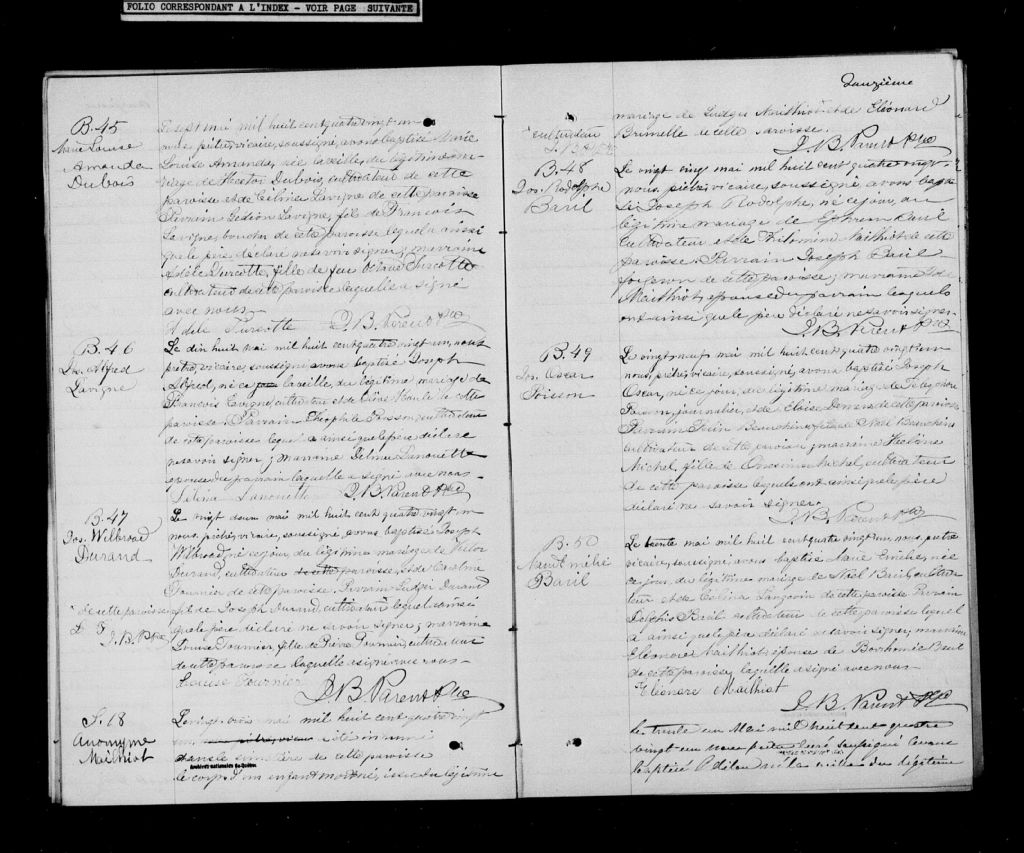 FOLIO CORRESPONDANT A L'INDEX - VOIR PAGE SUIVANTE
B.45
Marie Louise
Amanda
Dubois
Le sept mai mil huit cent quatre vingt un
nous prêtre, vicaire, soussigné, avons baptisé Marie
Louise Amanda, née la veille, du légitime ma-
riage de Hector Dubois, cultivateur de cette
paroisse et de Célina Lavigne de cette paroisse
Parrain Gédéon Lavigne, fils de François
Lavigne, boucher de cette paroisse lequel a ainsi
que le père déclaré ne savoir signer; marraine
Adèle Turcotte, fille de feu Octave Turcotte
cultivateur de cette paroisse laquelle a signé
avec nous
Adèle Turcotte J. B. Parent Ptre
B.46
Jos. Alfred
Lavigne
Le dix huit mai mil huit cent quatre vingt un, nous
prêtre, vicaire, soussigné avons baptisé Joseph
Alfred, né la veille, du légitime mariage de
François Lavigne, cultivateur et de de cette
paroisse Parrain Théophile Poisson, cultivateur
de cette paroisse lequel a ainsi que le père déclaré
ne savoir signer; marraine Délina Lanouette
épouse du parrain laquelle a signé avec nous
Lanouette J. B. Parent Ptre
B.47
Jos. Wilbroad
Durand
Le vingt deux mai mil huit cent quatre vingt un
nous, prêtre, vicaire, soussigné avons baptisé Joseph
Wilbroad, né ce jour, du légitime mariage de
Durand, cultivateur de cette paroisse, et de Caroline
Fournier de cette paroisse. Parrain Ludger Durand
de cette paroisse
J.B.P. Ptre
fils de Joseph Durand, cultivateur lequel a ainsi
que le père déclaré ne savoir signer, marraine
Louise Fournier, fille de Pierre Fournier, cultivateur
de cette paroisse laquelle a signé avec nous
Louise Fournier J. B. Parent Ptre
S.18
Anonyme
Mailhiot
Le vingt trois mai mil huit cent quatre vingt
un a été inhumé
dans le cimetière de cette paroisse
Archives nationales du Québec
le corps d'un enfant mort né, issu du légitime
deuxième
mariage de Ludger Mailhiot et de Eléonard
Brunelle de cette paroisse
cultivateur
J. B. P. Ptre
J. B. Parent Ptre
B.48
Jos. Rodolphe
Baril
Le vingt cinq mai mil huit cent quatre vingt
nous, prêtre, vicaire, soussigné, avons bapti-
sé Joseph Rodolphe, né ce jour, du
légitime mariage de Ephrem Baril
cultivateur et de Philomène Mailhiot de cette
paroisse. Parrain Joseph Baril
forgeron de cette paroisse; marraine
Mailhiot, épouse du parrain lesquels
ont ainsi que le père déclaré ne savoir signer
J. B. Parent Ptre
B.49
Jos. Oscar
Poisson
Le vingt neuf mai mil huit cent quatre vingt un
nous, prêtre, vicaire, soussigné, avons baptisé Joseph
Oscar, né ce jour, du légitime mariage de Télesphore
Poisson, journalier, et de Eloïse Demers de cette paroisse
Parrain Beauchène, fils de Noël Beauchène
cultivateur de cette paroisse; marraine
Michel, fille de Onésime Michel, cultivateur
de cette paroisse lesquels ont ainsi que le père
déclaré ne savoir signer
J. B. Parent Ptre
B.50
Baril
Le trente mai mil huit cent quatre vingt un nous prêtre
vicaire, soussigné, avons baptisé Marie Emélie, née
ce jour, du légitime mariage de Noël Baril, cultiva-
teur et de Célina Langevin de cette paroisse Parrain
Delphis Baril cultivateur de cette paroisse lequel
a ainsi que le père déclaré ne savoir signer, marraine
Eléonore Mailhiot épouse de Baril
de cette paroisse laquelle a signé avec nous
Eléonore Mailhiot
J. B. Parent Ptre
Le trente un Mai mil huit cent quatre
vingt un Nous prêtre curé soussigné avons
baptisé née la veille du légitime